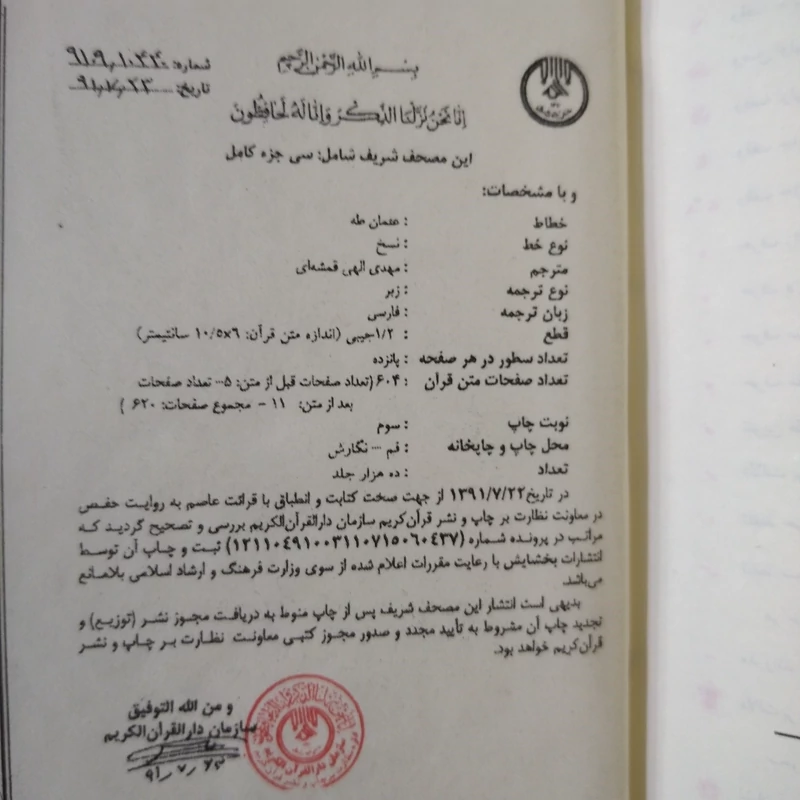 بسم الله الرحمن الرحیم
شماره: ۹۱۰۹۱۰۴۴۰
تاریخ: ۹۱٫۷٫۲۳
انا نحن نزلنا الذکر و انا له لحافظون
این مصحف شریف شامل: سی جزء کامل
و با مشخصات:
خطاط : عثمان طه
نوع خط : نسخ
مترجم : مهدی الهی قمشه‌ای
نوع ترجمه : زیر
زبان ترجمه : فارسی
قطع : ۱/۲جیبی (اندازه متن قرآن: ۱۰/۵×۶ سانتیمتر)
تعداد سطور در هر صفحه : پانزده
تعداد صفحات متن قرآن : ۶۰۴ (تعداد صفحات قبل از متن: ۵ --- تعداد صفحات
بعد از متن: ۱۱ - مجموع صفحات: ۶۲۰ )
نوبت چاپ : سوم
محل چاپ و چاپخانه : قم --- نگارش
تعداد : ده هزار جلد
در تاریخ ۱۳۹۱/۷/۲۲ از جهت صحت کتابت و انطباق با قرائت عاصم به روایت حفص
در معاونت نظارت بر چاپ و نشر قرآن‌کریم سازمان دارالقرآن‌الکریم بررسی و تصحیح گردید که
مراتب در پرونده شماره (۱۲۱۱۰۴۹۱۰۰۳۱۱۰۷۱۵۰۶۰۴۳۷) ثبت و چاپ آن توسط
انتشارات بخشایش با رعایت مقررات اعلام شده از سوی وزارت فرهنگ و ارشاد اسلامی بلامانع
می‌باشد.
بدیهی است انتشار این مصحف شریف پس از چاپ منوط به دریافت مجوز نشر (توزیع) و
تجدید چاپ آن مشروط به تأیید مجدد و صدور مجوز کتبی معاونت نظارت بر چاپ و نشر
قرآن‌کریم خواهد بود.
و من الله التوفیق
سازمان دارالقرآن‌الکریم
۹۱٫۷٫۲۳